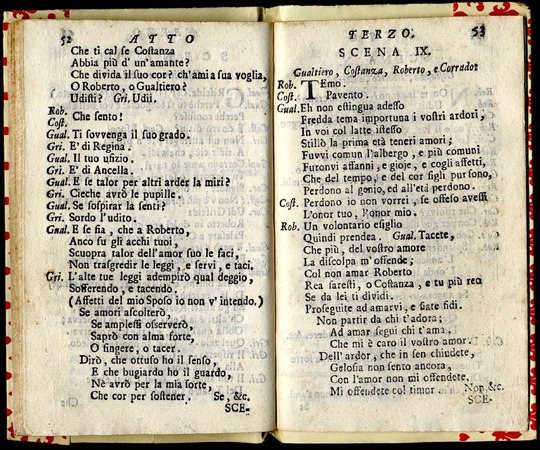 52
ATTO
Che ti cal se Costanza
Abbia più d' un'amante?
Che divida il suo cor? ch'ami a sua voglia,
O Roberto, o Gualtiero?
Udisti? Gri. Udii.
Rob.
Cost.
Che sento!
Gual. Ti sovvenga il suo grado.
Gri. E' di Regina.
Gual. Il tuo ufizio.
Gri. E' di Ancella.
Gual. E se talor per altri arder la miri?
Gri. Cieche avrò le pupille.
Gual. Se sospirar la senti?
Gri. Sordo l'udito.
Gual. E se fia, che a Roberto,
Anco su gli acchi tuoi,
Scuopra talor dell'amor suo le faci,
Non trasgredir le leggi, e servi, e taci.
Gri. L'alte tue leggi adempirò qual deggio,
Sofferendo, e tacendo.
(Affetti del mio Sposo io non v' intendo.)
Se amori ascolterò,
Se amplessi osserverò,
Saprò con alma forte,
O fingere, o tacer.
Dirò, che ottuso ho il senso,
E che bugiardo ho il guardo,
Nè avrò per la mia sorte,
Che cor per sostener. Se, &c.
SCE-
TERZO.
53
SCENA IX.
Gualtiero, Costanza, Roberto, e Corrado.
Rob. TEmo.
Cost. Pavento.
Gual. Eh non estingua adesso
Fredda tema importuna i vostri ardori;
In voi col latte istesso
Stillò la prima età teneri amori;
Fuvvi comun l'albergo, e più comuni
Furonvi affanni, e gioje, e cogli affetti,
Che del tempo, e del cor figli pur sono,
Perdono al genio, ed all'età perdono.
Cost. Perdono io non vorrei, se offeso avessi
L'onor tuo, l'onor mio.
Rob. Un volontario esiglio
Quindi prendea. Gual. Tacete,
Che più, del vostro amore
La discolpa m'offende;
Col non amar Roberto
Rea saresti, o Costanza, e tu più reo
Se da lei ti dividi.
Proseguite ad amarvi, e siate fidi.
Non partir da chi t'adora;
Ad amar segui chi t'ama,
Che mi è caro il vostro amor.
Dell' ardor, che in sen chiudete,
Gelosia non sento ancora,
Con l'amor non mi offendete,
Mi offendete col timor. Non, &c.
SCE-